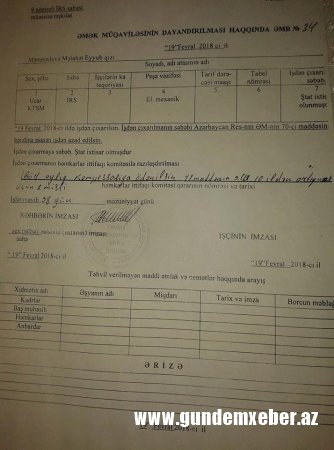 9 nömrəli İRS sahəsi
ƏMƏK MÜQAVİLƏSİNİN DAYANDIRILMASI HAQQINDA ƏMR № 34
"19" Fevral 2018-ci il
Məmmədova Mələhət Eyyub qızı
Soyadı, adı atasının adı
Sex, şöbə Sahə İşçilərin kateqoriyası Peşə vəzifəsi Tarif dərəcəsi maaşı Tabel nömrəsi İşdən çıxarılma səbəbi
1 2 3 4 5 6 7
Ucar KTSM İRS El. mexanik Ştat ixtisar olunmuşdu
"19" Fevral 2018-ci ildə işdən çıxarılsın. İşdən çıxarılmanın səbəbi Azərbaycan Res-nın ƏM-nin 70-ci maddəsinin
bəndinə əsasən işdən azad edilsin.
İşdən çıxarmaya səbəb. Ştat ixtisar olmuşdur
İşdən çıxarmanın həmkarlar ittifaqı komitəsilə razılaşdırılması
həmkarlar ittifaqı komitəsi qərarının nömrəsi və tarixi
28 gün məzuniyyət günü
RƏHBƏRİN İMZASI
İŞÇİNİN İMZASI
sex (şöbə) rəisinin (ustanın) imzası
"19" Fevral 2018-ci il "19" Fevral 2018-ci il
Təhvil verilməyən maddi əmlak və nemətlər haqqında arayış
Xidmətin adı Əşyanın adı Miqdarı Tarix və imza Borcun məbləği
Kadrlar
Baş mühasib
Həmkarlar
Anbardar
ƏRİZƏ
www.gundemxeber.az
2018-ci il